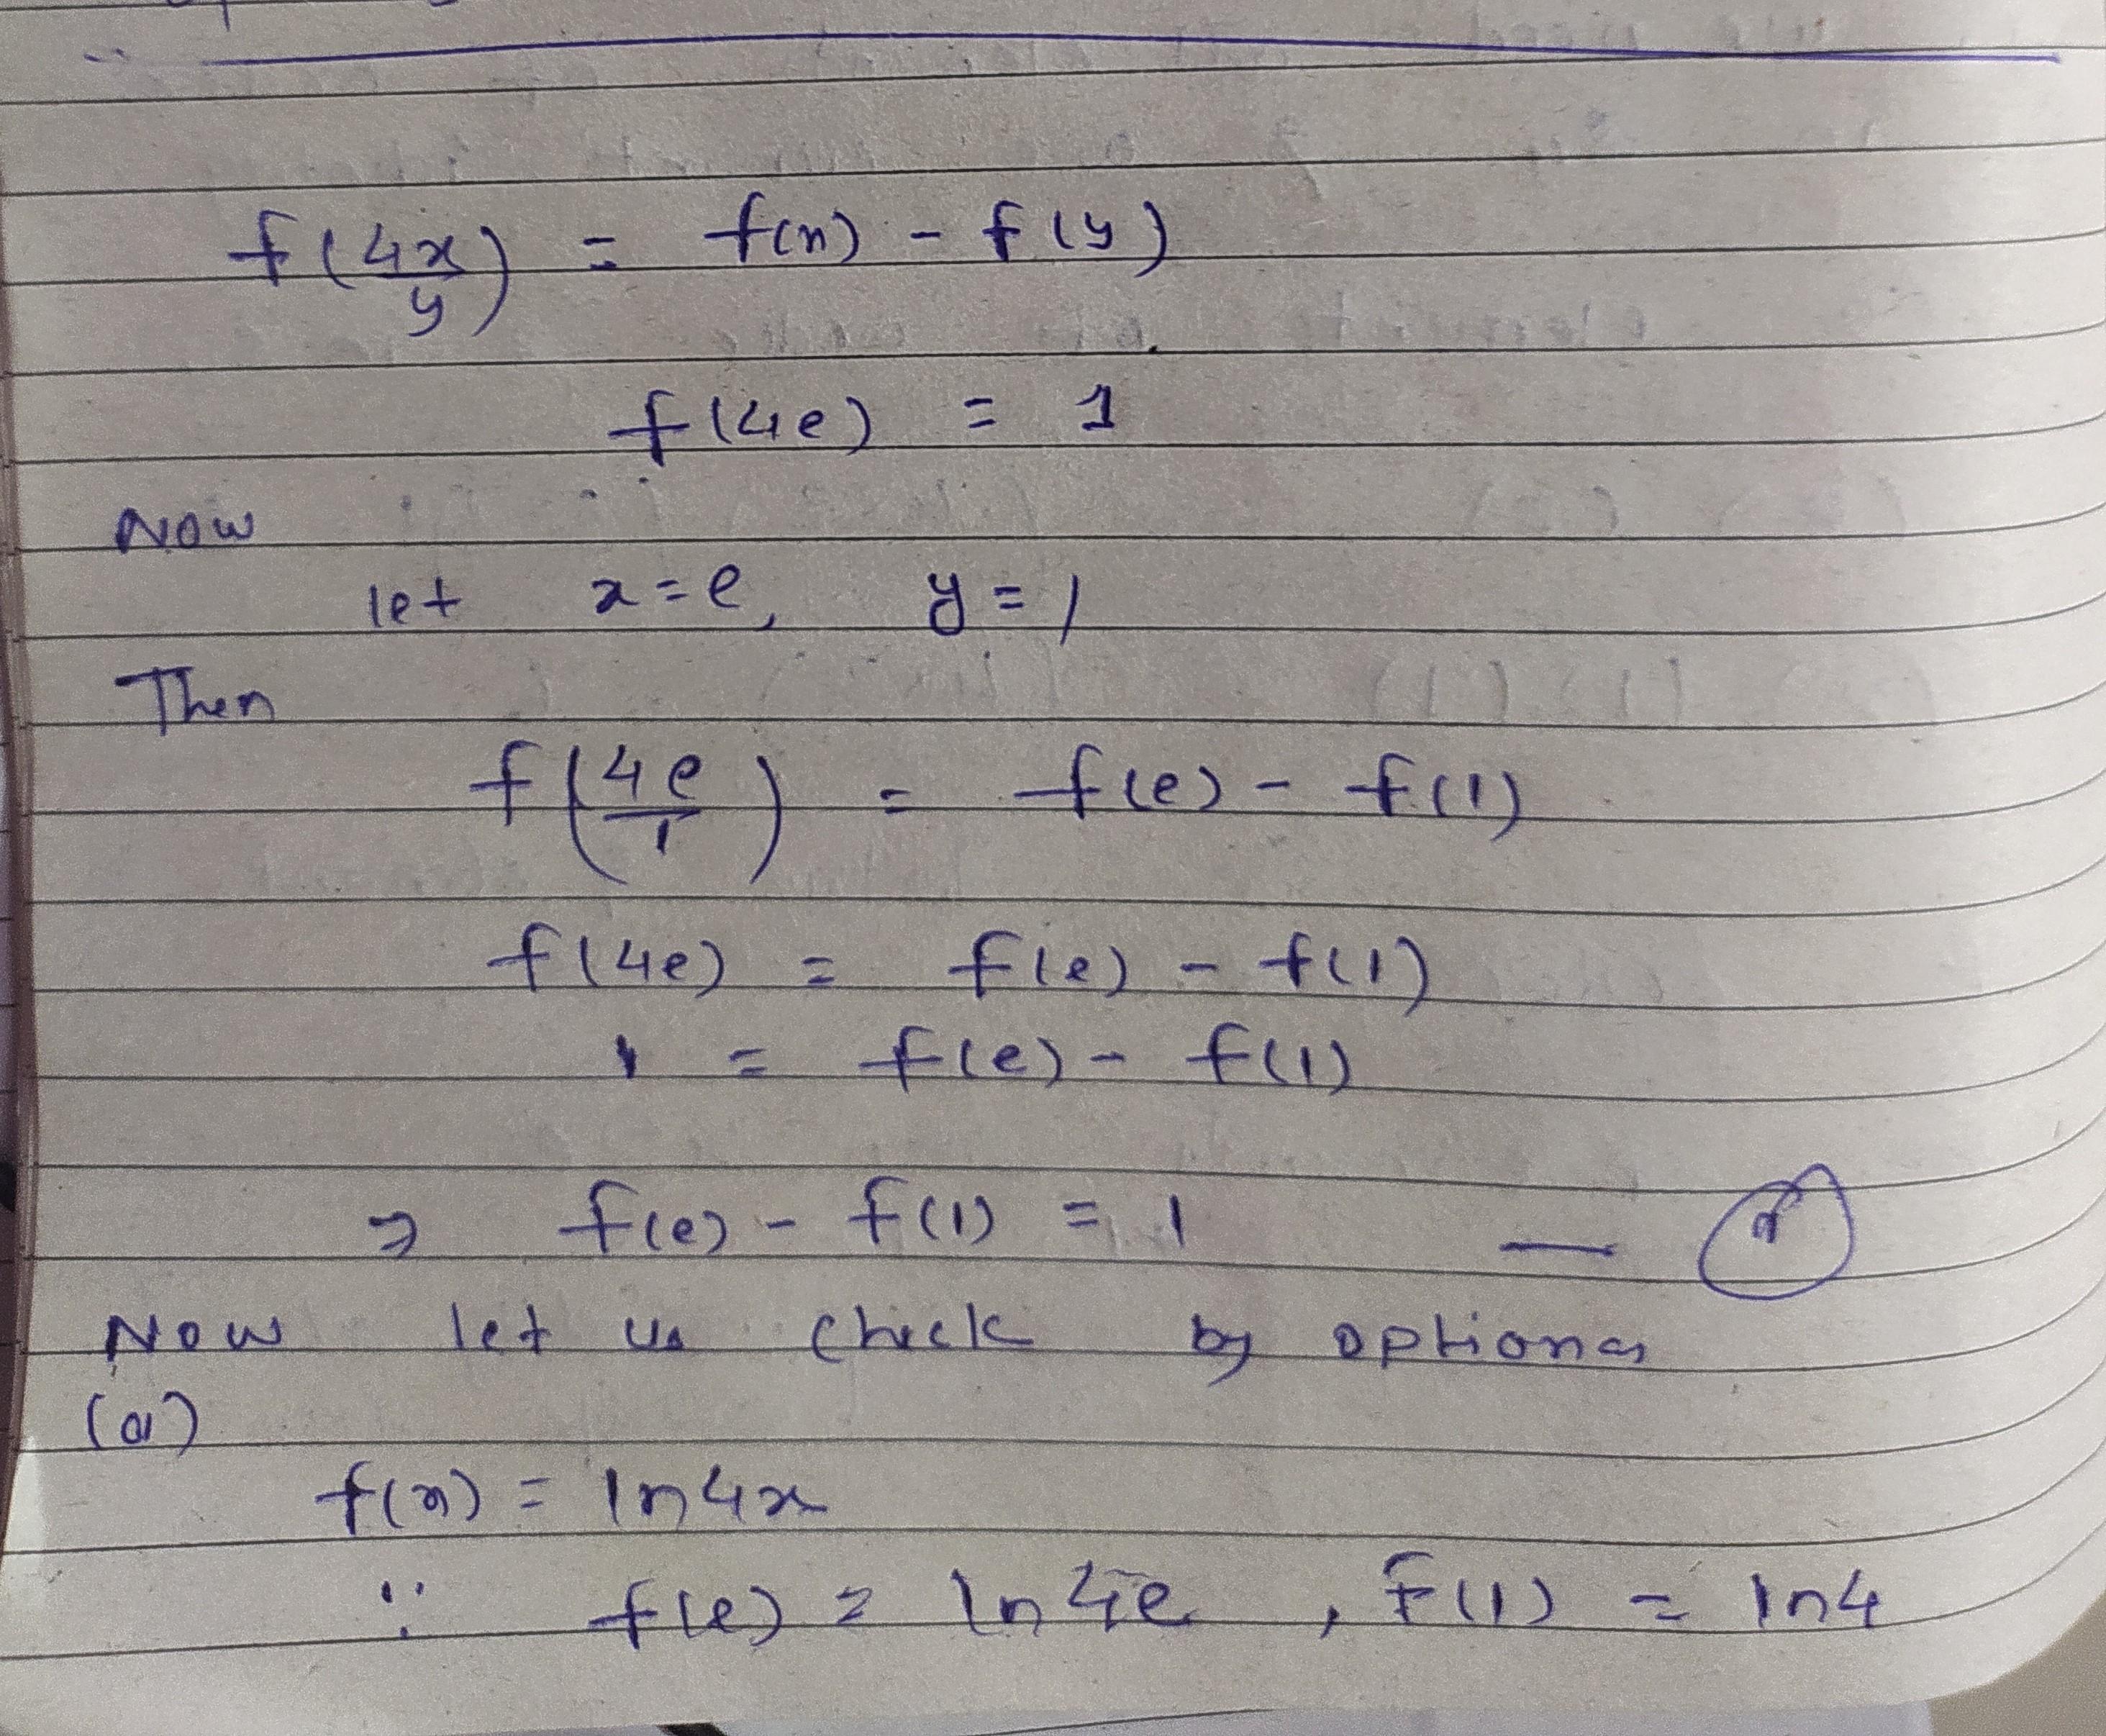 f(4x/y) = f(x) - f(y)
f(4e) = 1
Now
let x=e, y=1
Then
f(4e/1) = f(e) - f(1)
f(4e) = f(e) - f(1)
1 = f(e) - f(1)
⇒ f(e) - f(1) = 1 —
Now let us check by options
(a)
f(x) = ln4x
∵ f(e) = ln4e, f(1) = ln4